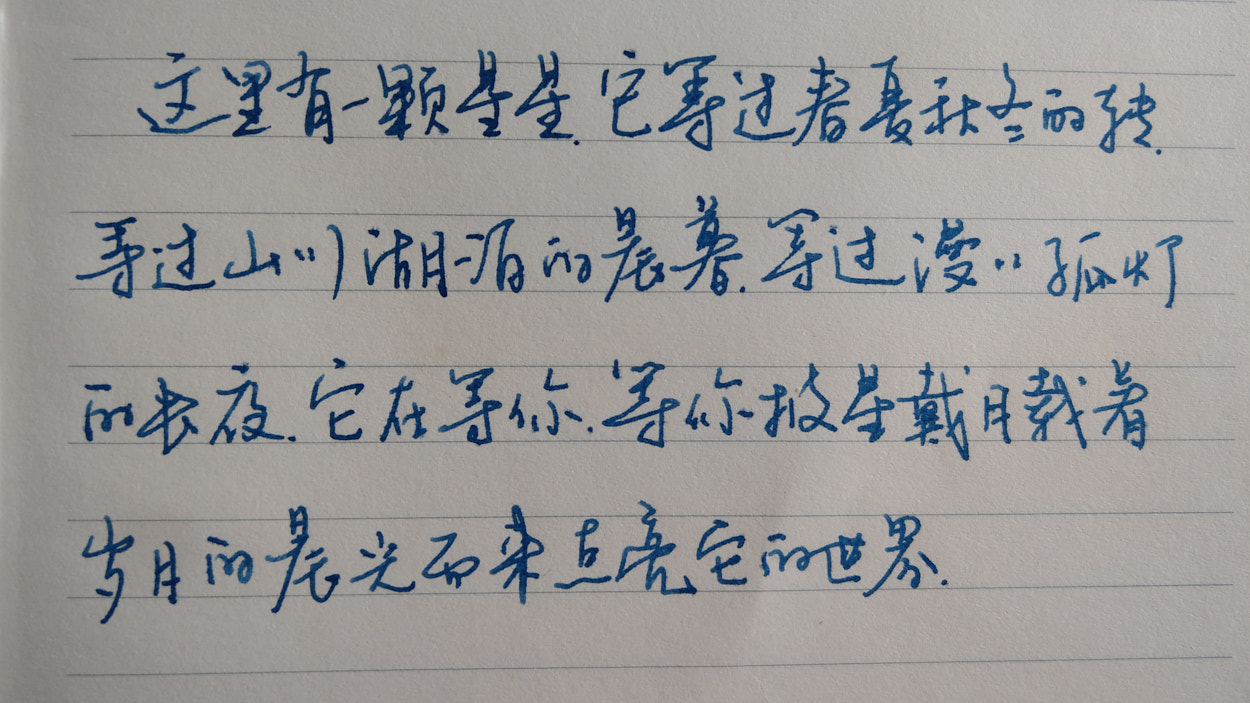 这里有一颗星星.它等过春夏秋冬的转.
等过山川湖泊的晨暮.等过漫漫孤灯
的长夜.它在等你.等你披星戴月载着
岁月的晨光而来点亮它的世界.